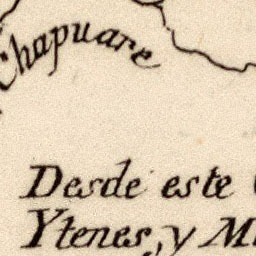 Chapuare
Desde este
Ytenes, y M